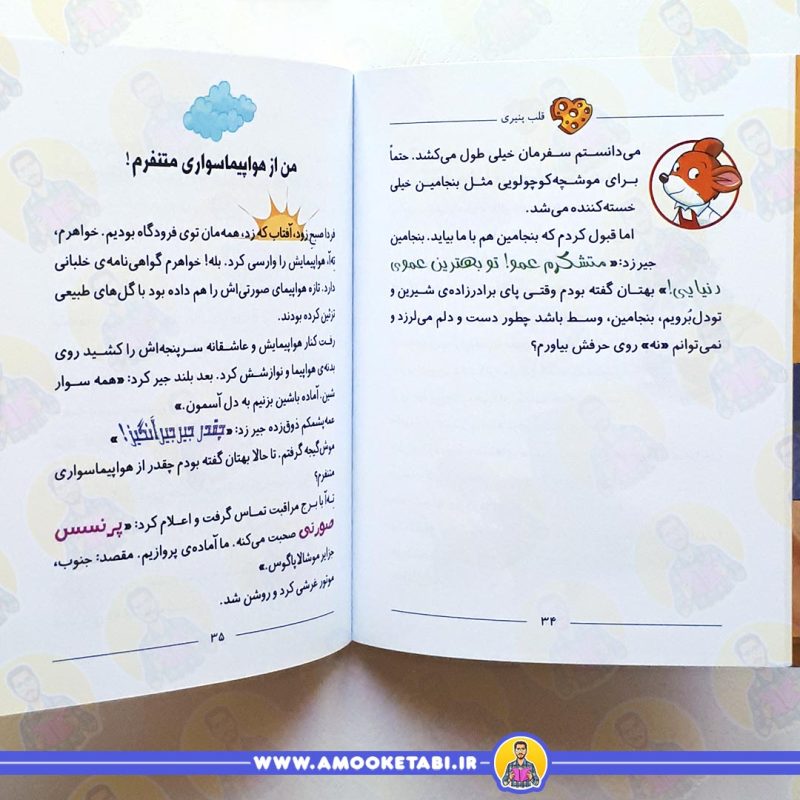 قلب پنیری
می‌دانستم سفرمان خیلی طول می‌کشد. حتماً
برای موشچه‌کوچولویی مثل بنجامین خیلی
خسته‌کننده می‌شد.
اما قبول کردم که بنجامین هم با ما بیاید. بنجامین
جیر زد: «متشکرم عمو! تو بهترین عموی
دنیایی!» بهتان گفته بودم وقتی پای برادرزاده‌ی شیرین و
تودل‌بُرویم، بنجامین، وسط باشد چطور دست و دلم می‌لرزد و
نمی‌توانم «نه» روی حرفش بیاورم؟
۳۴
من از هواپیماسواری متنفرم!
فردا صبحِ زود، آفتاب که زد، همه‌مان توی فرودگاه بودیم. خواهرم،
ته‌آ، هواپیمایش را وارسی کرد. بله! خواهرم گواهی‌نامه‌ی خلبانی
دارد. تازه هواپیمای صورتی‌اش را هم داده بود با گل‌های طبیعی
تزئین کرده بودند.
رفت کنار هواپیمایش و عاشقانه سرپنجه‌اش را کشید روی
بدنه‌ی هواپیما و نوازشش کرد. بعد بلند جیر کرد: «همه سوار
شین. آماده باشین بزنیم به دل آسمون.»
عمه‌پشمکم ذوق‌زده جیر زد: «چقدر جیرجیرانگیز!»
موش‌گیجه گرفتم. تا حالا بهتان گفته بودم چقدر از هواپیماسواری
متنفرم؟
ته‌آ با برج مراقبت تماس گرفت و اعلام کرد: «پرنسس
صورتی صحبت می‌کنه. ما آماده‌ی پروازیم. مقصد: جنوب،
جزایر موشالاپاگوس.»
موتور غرشی کرد و روشن شد.
۳۵
WWW.AMOOKETABI.IR